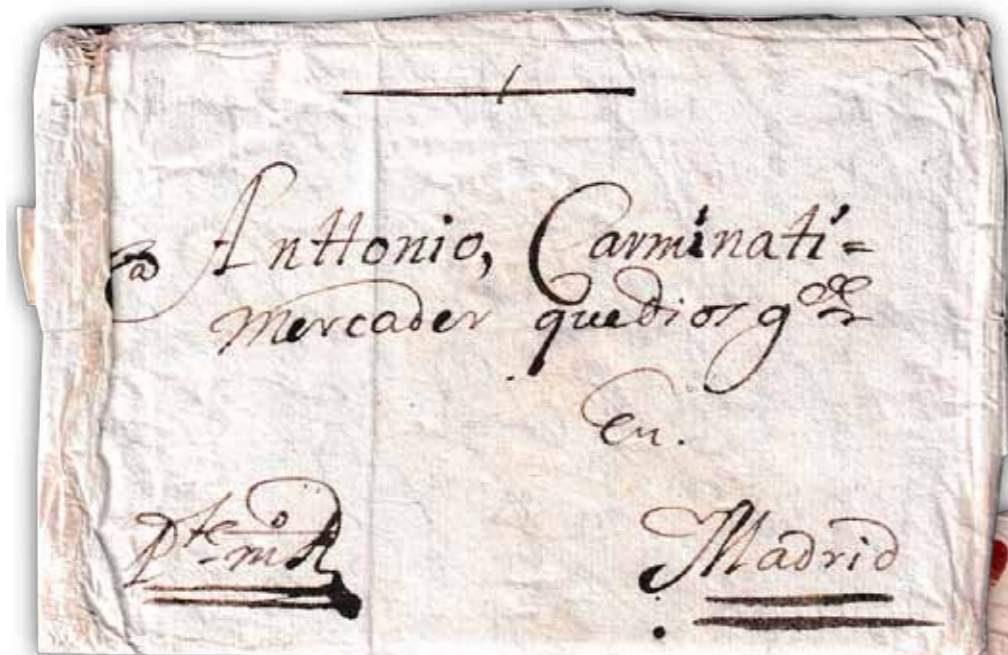 a Anttonio, Carminati=
mercader que dios g.de
En.
Madrid